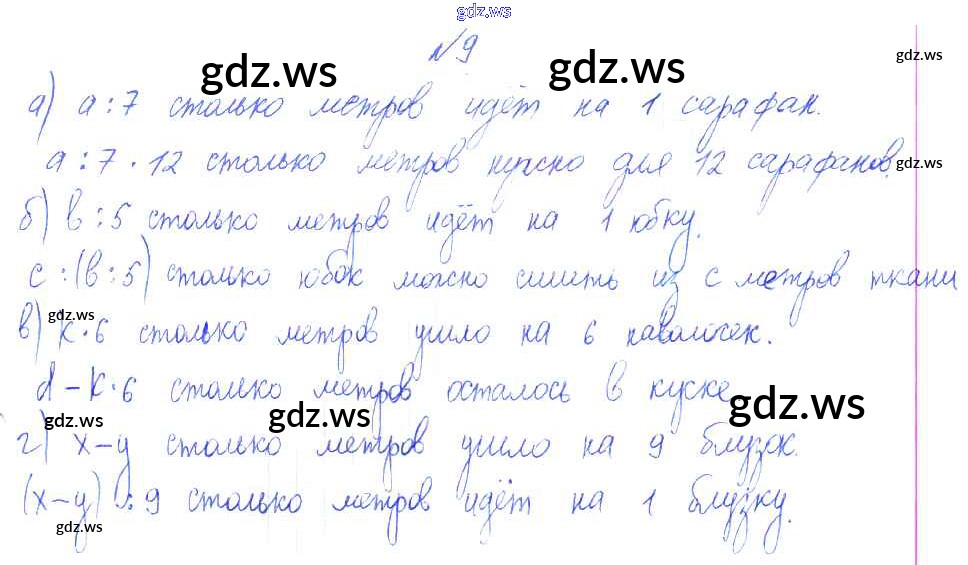 gdz.ws
№9
gdz.ws gdz.ws gdz.ws
а) a : 7 столько метров идёт на 1 сарафан.
a : 7 · 12 столько метров нужно для 12 сарафанов.
gdz.ws
б) b : 5 столько метров идёт на 1 юбку.
c : (b : 5) столько юбок можно сшить из c метров ткани
gdz.ws
в) k · 6 столько метров ушло на 6 наволочек.
d – k · 6 столько метров осталось в куске
gdz.ws gdz.ws gdz.ws
г) x – y столько метров ушло на 9 блузок.
(x – y) : 9 столько метров идёт на 1 блузку.
gdz.ws gdz.ws